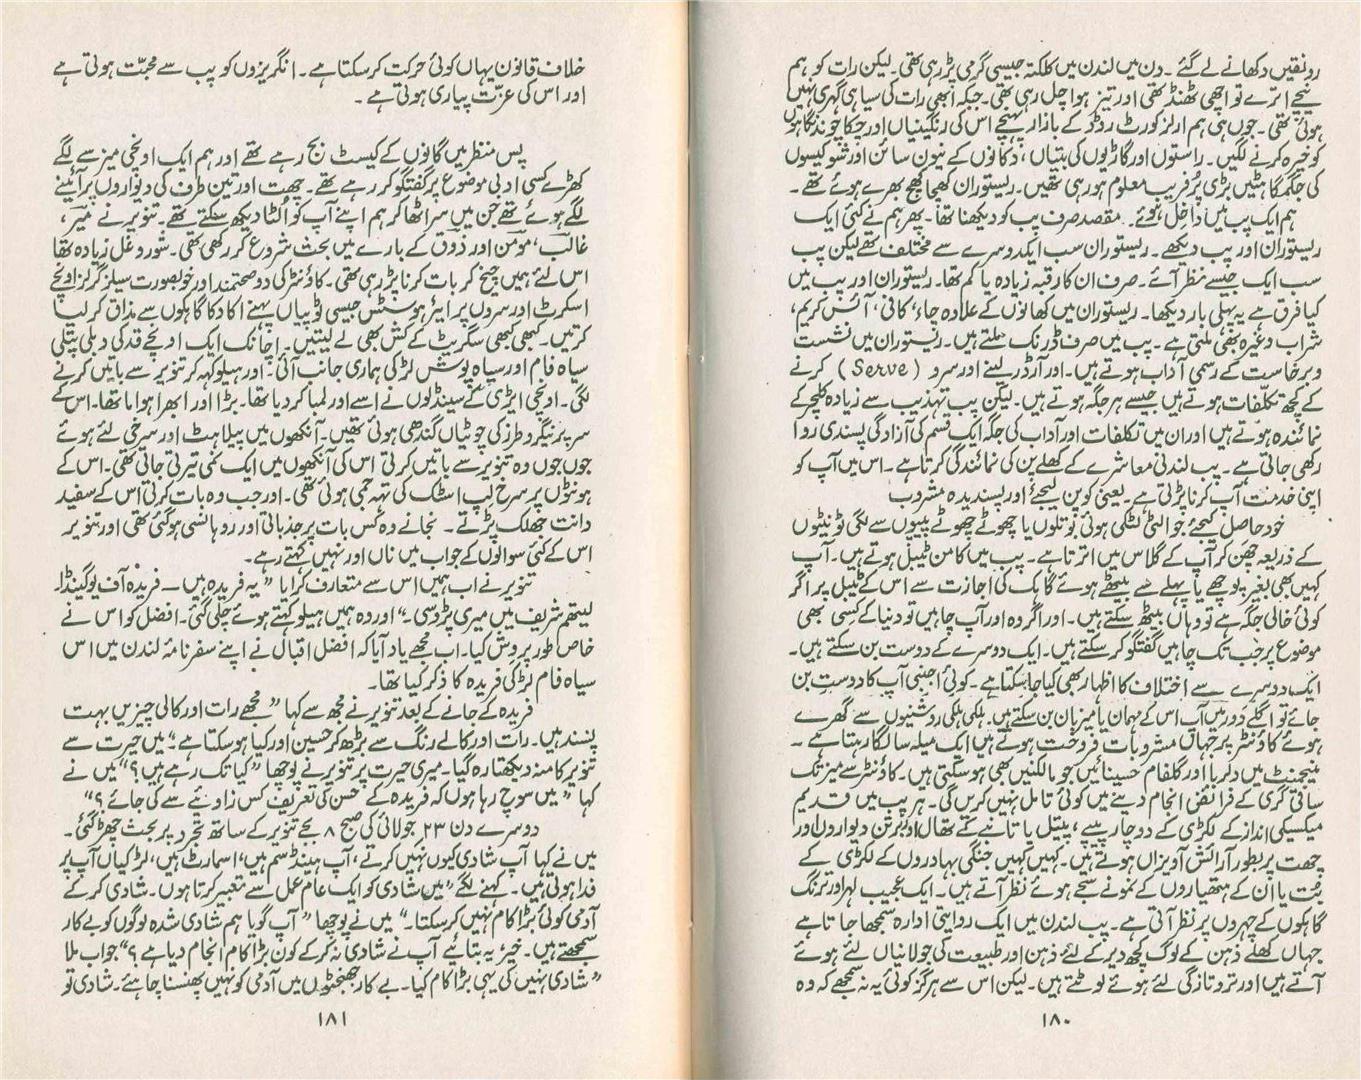 رونقیں دکھانے لے گئے۔ دن میں لندن میں کلکتہ جیسی گرمی پڑ رہی تھی۔ لیکن رات کو ہم
نیچے اترے تو اچھی ٹھنڈ تھی اور تیز ہوا چل رہی تھی۔ جبکہ ابھی رات کی سیاہی گہری نہیں
ہوئی تھی۔ جوں ہی ہم ارلز کورٹ روڈ کے بازار پہنچے اس کی رنگینیاں اور چکا چوند نگاہوں
کو خیرہ کرنے لگیں۔ راستوں اور گاڑیوں کی بتیاں، دکانوں کے نیون سائن اور شو کیسوں
کی جگمگاہٹیں بڑی پُر فریب معلوم ہو رہی تھیں۔ ریستوران کھچا کھچ بھرے ہوئے تھے۔
ہم ایک پب میں داخل ہوئے۔ مقصد صرف پب کو دیکھنا تھا۔ پھر ہم نے کئی ایک
ریستوران اور پب دیکھے۔ ریستوران سب ایکدوسرے سے مختلف تھے لیکن پب
سب ایک جیسے نظر آئے۔ صرف ان کا رقبہ زیادہ یا کم تھا۔ ریستوران اور پب میں
کیا فرق ہے یہ پہلی بار دیکھا۔ ریستوران میں کھانوں کے علاوہ چاء، کافی، آئس کریم،
شراب وغیرہ بھی ملتی ہے۔ پب میں صرف ڈرنک ملتے ہیں۔ ریستوران میں نشست
و برخاست کے رسمی آداب ہوتے ہیں۔ اور آرڈر لینے اور سرو (Serve) کرنے
کے کچھ تکلّفات ہوتے ہیں جیسے ہر جگہ ہوتے ہیں۔ لیکن پب تہذیب سے زیادہ کلچر کے
نمائندہ ہوتے ہیں اور ان میں تکلفات اور آداب کی جگہ ایک قسم کی آزادگی پسندی روا
رکھی جاتی ہے۔ پب لندنی معاشرے کے کھلے پن کی نمائندگی کرتا ہے۔ اس میں آپ کو
اپنی خدمت آپ کرنا پڑتی ہے۔ یعنی کوپن لیجئے اور پسندیدہ مشروب
خود حاصل کیجئے جو الٹی لٹکی ہوئی بوتلوں یا چھوٹے چھوٹے پیپوں سے لگی ٹونٹیوں
کے ذریعہ چھن کر آپ کے گلاس میں اترتا ہے۔ پب میں کامن ٹیبل ہوتے ہیں۔ آپ
کہیں بھی بغیر پوچھے یا پہلے سے بیٹھے ہوئے گاہک کی اجازت سے اس کے ٹیبل پر اگر
کوئی خالی جگہ ہے تو وہاں بیٹھ سکتے ہیں۔ اور اگر وہ اور آپ چاہیں تو دنیا کے کسی بھی
موضوع پر جب تک چاہیں گفتگو کر سکتے ہیں۔ ایک دوسرے کے دوست بن سکتے ہیں۔
ایک دوسرے سے اختلاف کا اظہار بھی کیا جا سکتا ہے۔ کوئی اجنبی آپ کا دوست بن
جائے تو اگلے دَور میں آپ اس کے مہمان یا میزبان بن سکتے ہیں۔ ہلکی ہلکی روشنیوں سے گھرے
ہوئے کاؤنٹر پر جہاں مشروبات فروخت ہوتے ہیں ایک میلہ سا لگا رہتا ہے۔
مینجمنٹ میں دلربا اور گلفام حسینائیں جو مالکنیں بھی ہو سکتی ہیں۔ کاؤنٹر سے میز تک
ساقی گری کے فرائض انجام دینے میں کوئی تامل نہیں کریں گی۔ ہر پب میں قدیم
میکسیکی انداز کے لکڑی کے دوچار پیپے، پیتل یا تانبے کے تھال اور برتن دیواروں اور
چھت پر بطور آرائش آویزاں ہوتے ہیں۔ کہیں کہیں جنگی بہادروں کے لکڑی کے
بُت یا ان کے ہتھیاروں کے نمونے سجے ہوئے نظر آتے ہیں۔ ایک عجیب لہر اور ترنگ
گاہکوں کے چہروں پر نظر آتی ہے۔ پب لندن میں ایک روایتی ادارہ سمجھا جاتا ہے
جہاں کھلے ذہن کے لوگ کچھ دیر کے لئے ذہن اور طبیعت کی جولانیاں لئے ہوئے
آتے ہیں اور تروتازگی لئے ہوئے لوٹتے ہیں۔ لیکن اس سے ہرگز کوئی یہ نہ سمجھے کہ وہ
۱۸۰
خلاف قانون یہاں کوئی حرکت کر سکتا ہے۔ انگریزوں کو پب سے محبّت ہوتی ہے
اور اس کی عزّت پیاری ہوتی ہے۔
پس منظر میں گانوں کے کیسٹ بج رہے تھے اور ہم ایک اونچی میز سے لگے
کھڑے کسی ادبی موضوع پر گفتگو کر رہے تھے۔ چھت اور تین طرف کی دیواروں پر آئینے
لگے ہوئے تھے جن میں سر اٹھا کر ہم اپنے آپ کو اُلٹا دیکھ سکتے تھے۔ تنویر نے میر،
غالب، مومن اور ذوق کے بارے میں بحث شروع کر رکھی تھی۔ شور و غل زیادہ تھا
اس لئے ہمیں چیخ کر بات کرنا پڑ رہی تھی۔ کاؤنٹر کی دو صحتمند اور خوبصورت سیلز گرلز اونچے
اسکرٹ اور سروں پر ایئر ہوسٹس جیسی ٹوپیاں پہنے اکا دکا گاہکوں سے مذاق کر لیا
کرتیں۔ کبھی کبھی سگریٹ کے کش بھی لے لیتیں۔ اچانک ایک اونچے قد کی دبلی پتلی
سیاہ فام اور سیاہ پوش لڑکی ہماری جانب آئی۔ اور ہیلو کہہ کر تنویر سے باتیں کرنے
لگی۔ اونچی ایڑی کے سینڈلوں نے اسے اور لمبا کر دیا تھا۔ بڑا اور ابھرا ہوا ماتھا۔ اس کے
سر پر نیگرو طرز کی چوٹیاں گندھی ہوئی تھیں۔ آنکھوں میں پیلاہٹ اور سرخی لئے ہوئے
جوں جوں وہ تنویر سے باتیں کرتی اس کی آنکھوں میں ایک نمی تیرتی جاتی تھی۔ اس کے
ہونٹوں پر سرخ لپ اسٹک کی تہہ جمی ہوئی تھی۔ اور جب وہ بات کرتی اس کے سفید
دانت جھلک پڑتے۔ نجانے وہ کس بات پر جذباتی اور روہانسی ہو گئی تھی اور تنویر
اس کے کئی سوالوں کے جواب میں ناں اور نہیں کہتے رہے۔
تنویر نے اب ہمیں اس سے متعارف کرایا "یہ فریدہ ہیں — فریدہ آف یوگینڈا۔
لیتھم شریف میں میری پڑوسی۔" اور وہ ہمیں ہیلو کہتے ہوئے چلی گئی۔ افضل کو اس نے
خاص طور پر وش کیا۔ اب مجھے یاد آیا کہ افضل اقبال نے اپنے سفرنامۂ لندن میں اس
سیاہ فام لڑکی فریدہ کا ذکر کیا تھا۔
فریدہ کے جانے کے بعد تنویر نے مجھ سے کہا "مجھے رات اور کالی چیزیں بہت
پسند ہیں۔ رات اور کالے رنگ سے بڑھ کر حسین اور کیا ہو سکتا ہے۔" میں حیرت سے
تنویر کا منہ دیکھتا رہ گیا۔ میری حیرت پر تنویر نے پوچھا "کیا تک رہے ہیں؟" میں نے
کہا "میں سوچ رہا ہوں کہ فریدہ کے حسن کی تعریف کس زاویئے سے کی جائے؟"
دوسرے دن ۲۳ جولائی کی صبح ۸ بجے تنویر کے ساتھ تجرد پر بحث چھڑ گئی۔
میں نے کہا آپ شادی کیوں نہیں کرتے، آپ ہینڈسم ہیں، اسمارٹ ہیں، لڑکیاں آپ پر
فدا ہوتی ہیں۔ کہنے لگے "میں شادی کو ایک عام عمل سے تعبیر کرتا ہوں۔ شادی کر کے
آدمی کوئی بڑا کام نہیں کر سکتا۔" میں نے پوچھا "آپ گویا ہم شادی شدہ لوگوں کو بے کار
سمجھتے ہیں۔ خیر یہ بتائیے آپ نے شادی نہ کر کے کون بڑا کام انجام دیا ہے؟" جواب ملا
"شادی نہیں کی یہی بڑا کام کیا۔ بے کار جھنجٹوں میں آدمی کو نہیں پھنسنا چاہئے۔ شادی تو
۱۸۱